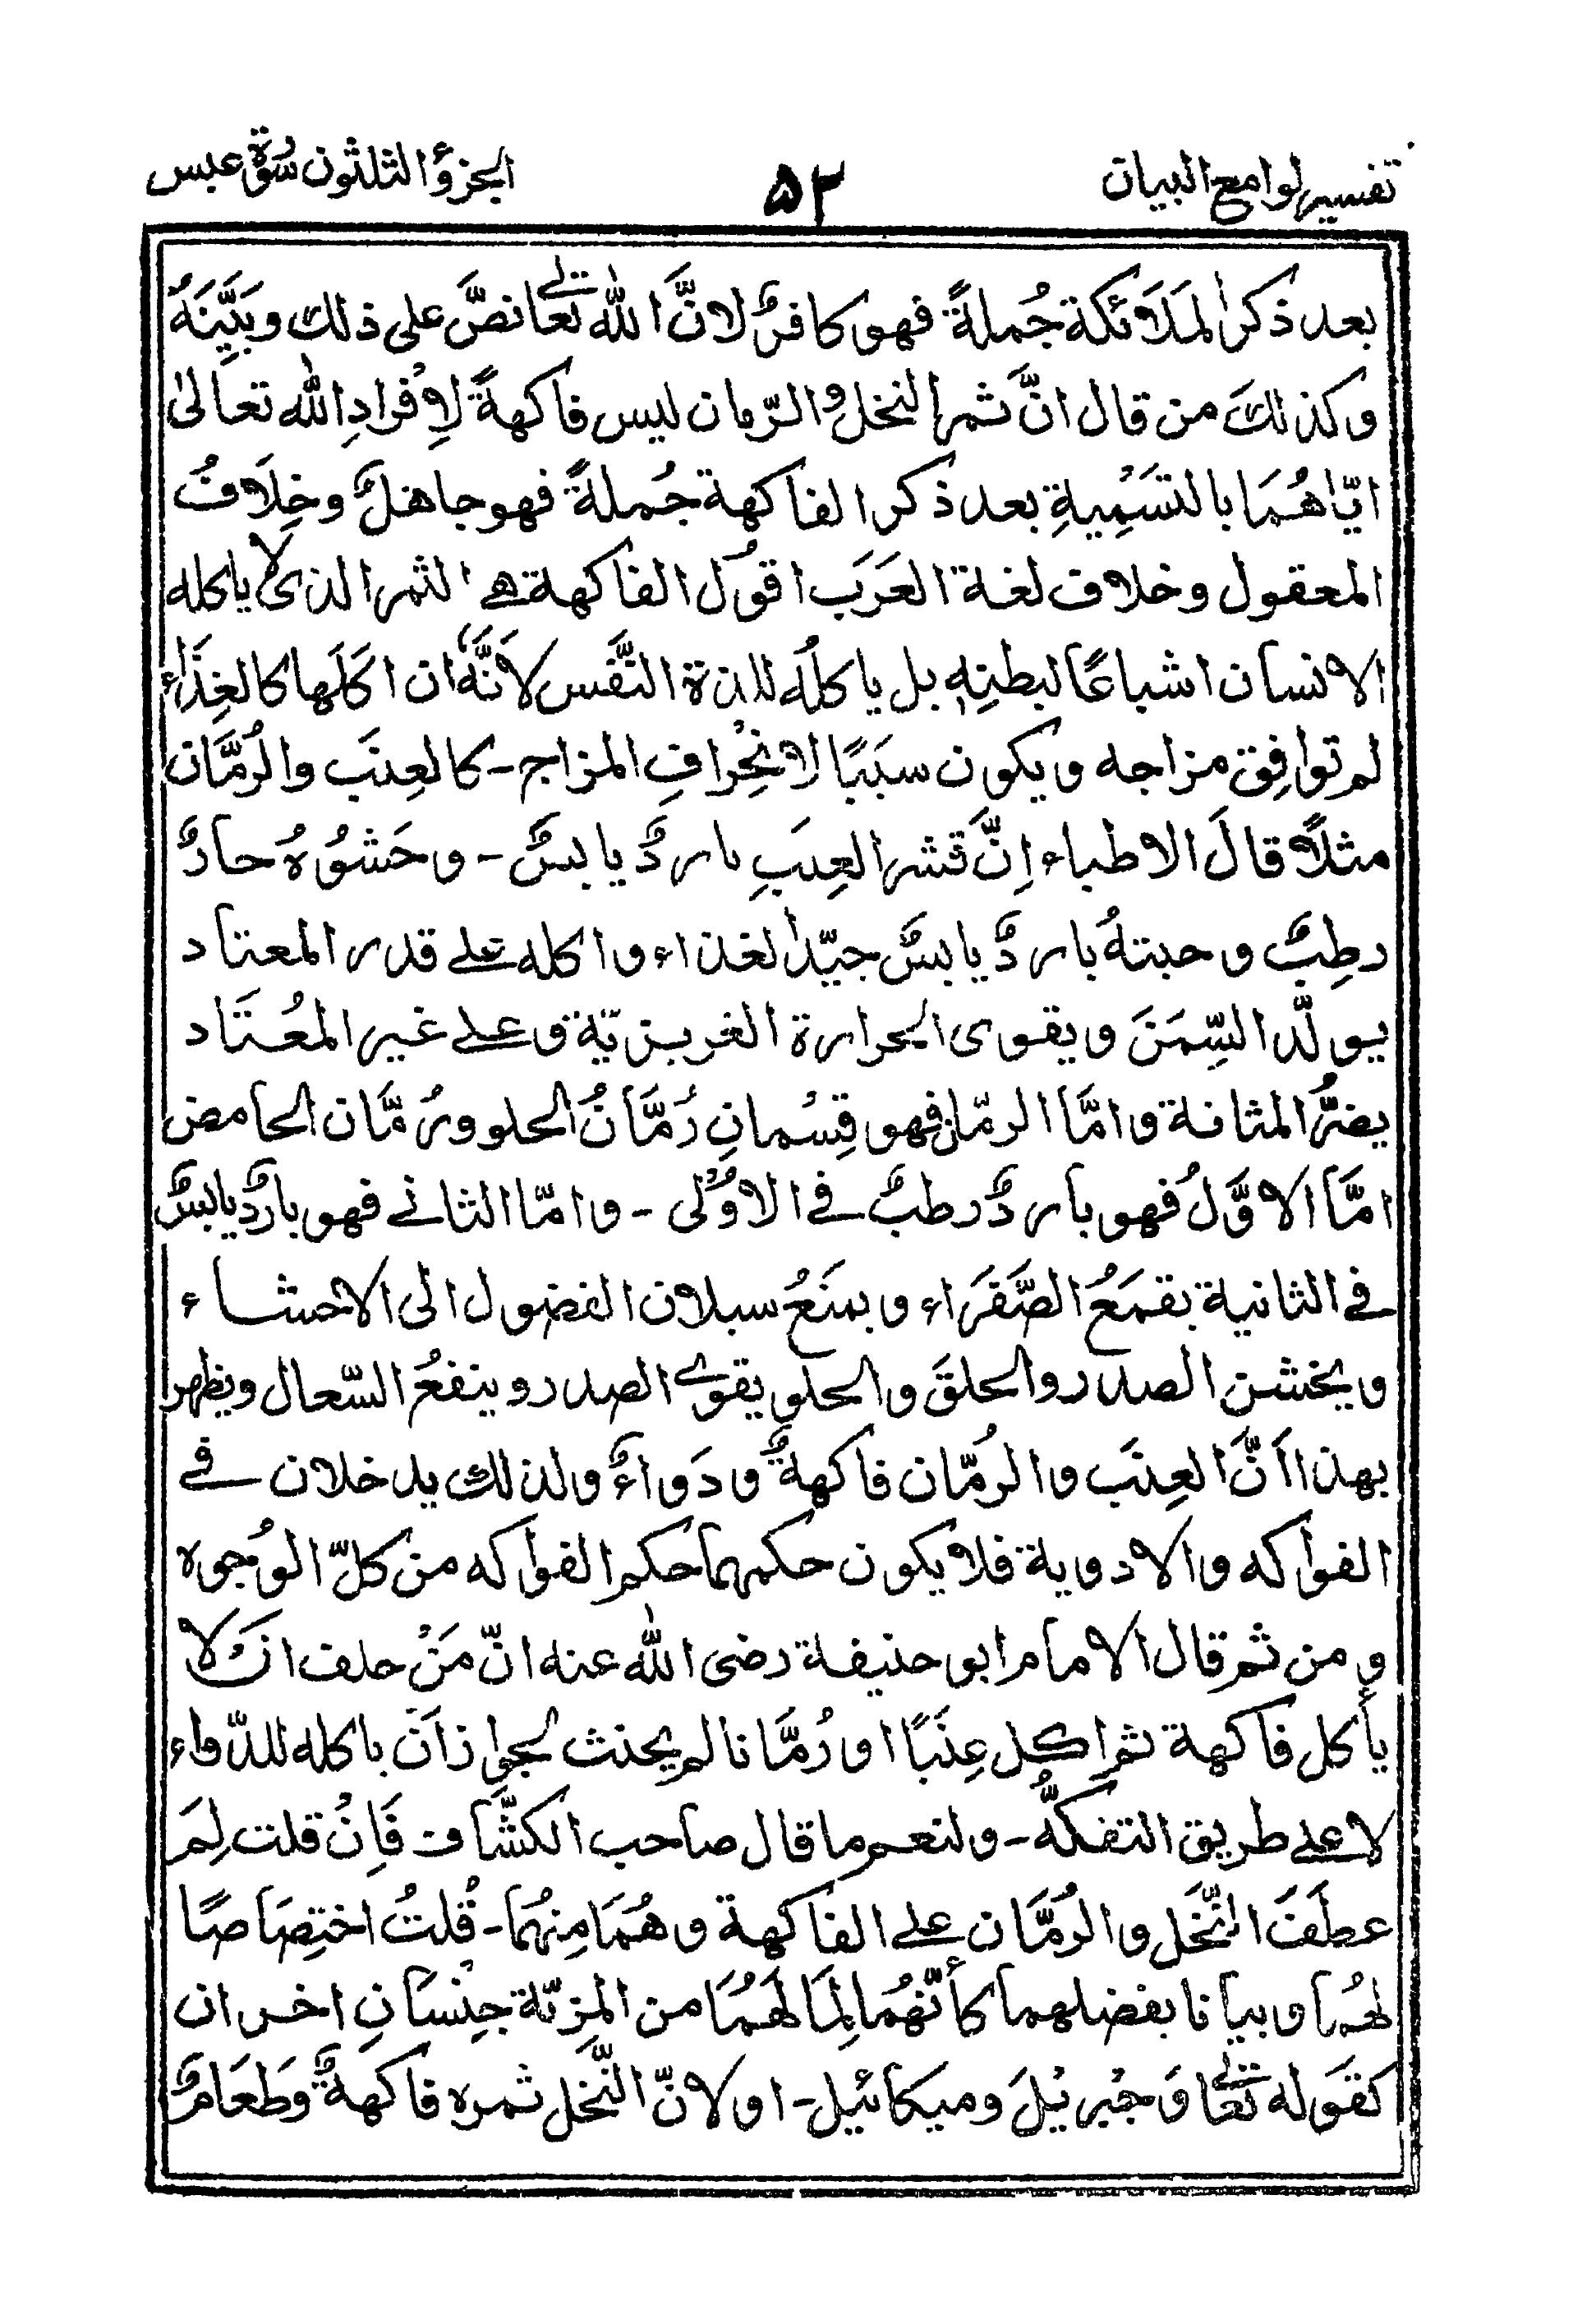 تفسير لوامع البيان ۵۲ الجزؤ الثلثون سورة عبس
بعد ذكر الملَائكة جُملةً فهو كافرٌ لانَّ الله تعالےٰ نصَّ على ذلك وبَيَّنَهٗ
وكذلكَ من قال انَّ ثمر النخل والرّمان ليس فاكهةً لِافْرادِ الله تعالىٰ
ايّاهُمَا بالتسْمِيةِ بعد ذكر الفاكهة جُملةً فهو جاهلٌ وخِلَافُ
المعقول وخلاف لغة العَرَب اقولُ الفاكهة هے الثمر الذى لا ياكله
الانسان اشباعًا لبطنِهٖ بل ياكلُه للذة النَّفس لاَنَّهٗ ان اكَلَها كالغِذَاء
لم توافِق مزاجه ويكون سبَبًا لانحِْرافِ المزاج - كالعِنَب والرُمَّان
مثلاً قالَ الاطباء اِنَّ قشر العِنَبِ باردٌ يابسٌ - وحَشوُهُ حارٌ
رطِبٌ وحبتهُ باردٌ يابسٌ جيّد الغذاء واكله علے قدر المعتاد
يولّد السِّمَنَ ويقوى الحرارة الغريزيّة وعلے غير المُعتَاد
يضرُّ المثانة وامَّا الرمّان فهو قِسْمانِ رُمَّانُ الحلو ورُمَّان الحامض
امَّا الاوَّلُ فهو باردٌ رطبٌ فے الاوُلى - وامّا الثانے فهو باردٌ يابسٌ
فے الثانية يقمَعُ الصَّفَرَاء ويمنَعُ سيلان الفضول الى الاحشاء
ويخشن الصدر والحلقَ والحلو يقوے الصدر وينفعُ السّعال ويظهر
بهذا اَنَّ العِنَب والرُمّان فاكهةٌ ودَواءٌ ولذلك يدخلان فے
الفواكه والادوية فلا يكون حكمهما حكم الفواكه من كلّ الوُجوه
ومن ثم قال الامام ابو حنيفة رضى الله عنه انّ مَنْ حلف انهٗ لا
يأكل فاكهة ثم اكل عِنَبًا او رُمَّانا لم يحنث لجواز اَن ياكله للدّواء
لا علے طريق التفكُّه - ولنعم ما قال صاحب الكشَّاف فَاِنْ قلت لِمَ
عطَفَ النَّخَل والرُمَّان علے الفاكهة وهُمَا مِنهُما - قُلتُ اختِصَاصًا
لهُما وبيانا بفضلهما كأنَّهُما لِمَا لَهُمَا من المزيّة جِنسَانِ اخران
كقَوله تعالےٰ وَجبريْلَ وميكائيل - او لانّ النَّخل ثمره فاكهةٌ وَطعَامٌ